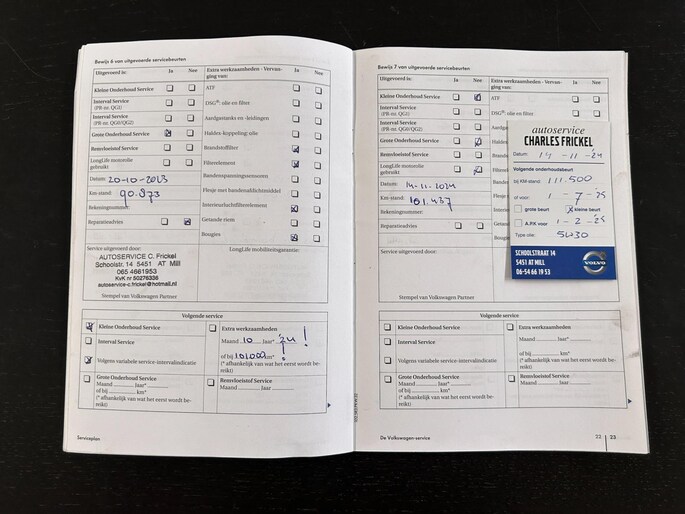 Bewijs 6 van uitgevoerde servicebeurten
Uitgevoerd is: Ja Nee
Extra werkzaamheden - Vervanging van: Ja Nee
Kleine Onderhoud Service
ATF
Interval Service
(PR-nr. QG1)
DSG®: olie en filter
Interval Service
(PR-nr. QG0/QG2)
Aardgastanks en -leidingen
Grote Onderhoud Service
Haldex-koppeling: olie
Remvloeistof Service
Brandstoffilter
LongLife motorolie
gebruikt
Filterelement
Datum: 20-10-2023
Bandenspanningssensoren
Km-stand: 90.973
Flesje met bandenafdichtmiddel
Rekeningnummer:
Interieurluchtfilterelement
Reparatieadvies
Getande riem
Bougies
Service uitgevoerd door:
LongLife mobiliteitsgarantie:
AUTOSERVICE C. Frickel
Schoolstr. 14 5451 AT Mill
065 4661953
KvK nr 50276336
autoservice-c.frickel@hotmail.nl
Stempel van Volkswagen Partner
Volgende service
Kleine Onderhoud Service
Extra werkzaamheden
Interval Service
Maand 10 Jaar* '24 !
Volgens variabele service-intervalindicatie
of bij 101.000 km*
(* afhankelijk van wat het eerst wordt bereikt)
Grote Onderhoud Service
Maand Jaar*
of bij km*
(* afhankelijk van wat het eerst wordt bereikt)
Remvloeistof Service
Maand Jaar
Serviceplan
Bewijs 7 van uitgevoerde servicebeurten
Uitgevoerd is: Ja Nee
Extra werkzaamheden - Vervanging van: Ja Nee
Kleine Onderhoud Service
ATF
Interval Service
(PR-nr. QG1)
DSG®: olie en filter
Interval Service
(PR-nr. QG0/QG2)
Grote Onderhoud Service
Remvloeistof Service
LongLife motorolie
gebruikt
Datum: 14-11-2024
Km-stand: 101.437
Rekeningnummer:
Reparatieadvies
Service uitgevoerd door:
Stempel van Volkswagen Partner
autoservice
CHARLES FRICKEL
Datum: 14-11-'24
Volgende onderhoudsbeurt
bij KM-stand: 111.500
of voor: 1-7-'25
grote beurt kleine beurt
A.P.K voor: 1-2-'25
Type olie: 5W30
SCHOOLSTRAAT 14
5451 AT MILL
06-54 66 19 53
VOLVO
Volgende service
Kleine Onderhoud Service
Extra werkzaamheden
Interval Service
Maand Jaar*
Volgens variabele service-intervalindicatie
of bij km*
(* afhankelijk van wat het eerst wordt bereikt)
Grote Onderhoud Service
Maand Jaar*
of bij km*
(* afhankelijk van wat het eerst wordt bereikt)
Remvloeistof Service
Maand Jaar
De Volkswagen-service
22 23